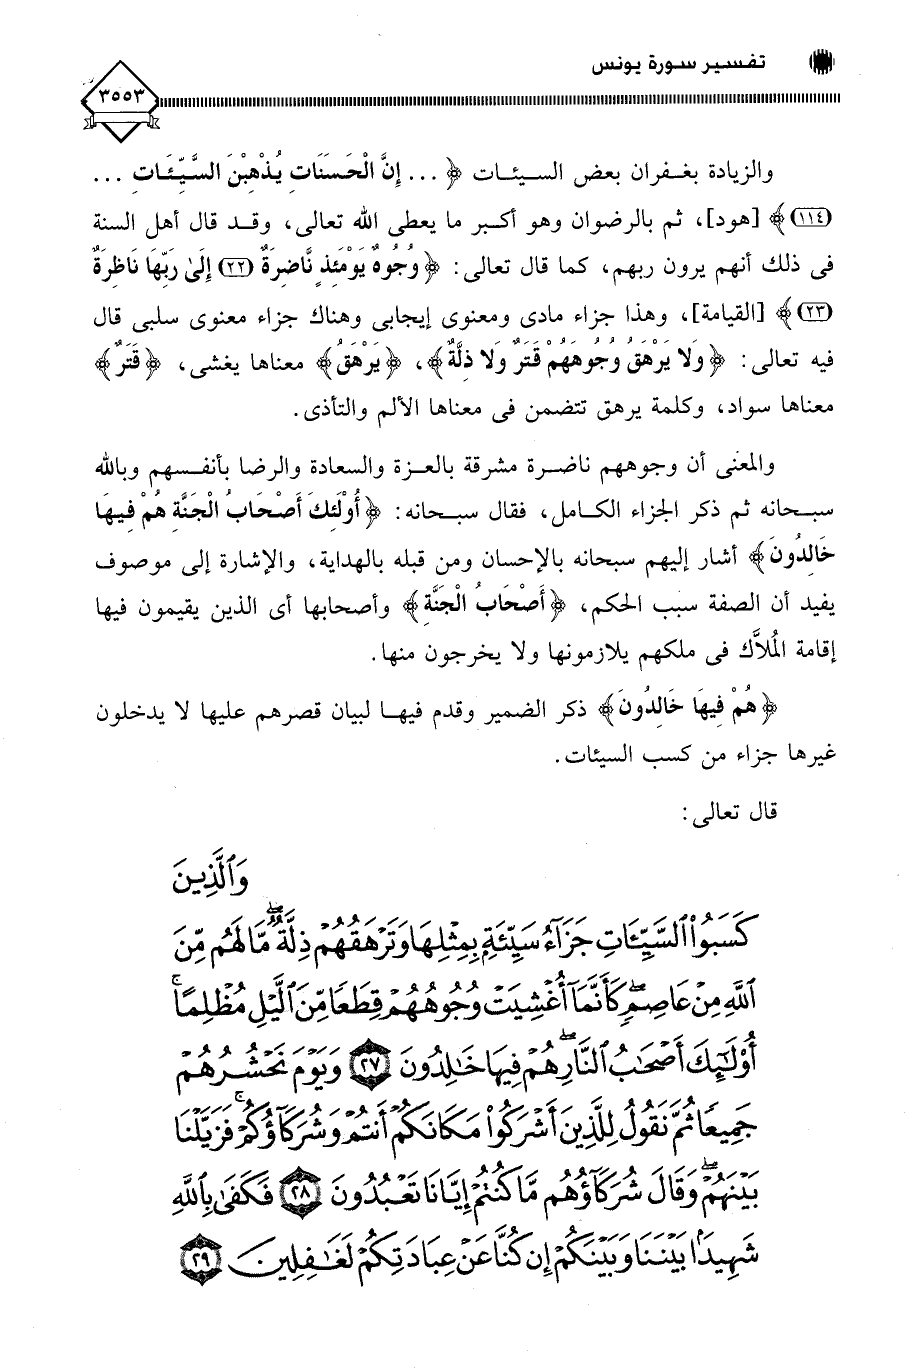 تفسير سورة يونس
٣٥٥٣
والزيادة بغفران بعض السيئات ﴿... إِنَّ الْحَسَنَاتِ يُذْهِبْنَ السَّيِّئَاتِ ...
(١١٤)﴾ [هود]، ثم بالرضوان وهو أكبر ما يعطى الله تعالى، وقد قال أهل السنة
فى ذلك أنهم يرون ربهم، كما قال تعالى: ﴿وُجُوهٌ يَوْمَئِذٍ نَّاضِرَةٌ (٢٢) إِلَىٰ رَبِّهَا نَاظِرَةٌ
(٢٣)﴾ [القيامة]، وهذا جزاء مادى ومعنوى إيجابى وهناك جزاء معنوى سلبى قال
فيه تعالى: ﴿وَلا يَرْهَقُ وُجُوهَهُمْ قَتَرٌ وَلا ذِلَّةٌ﴾، ﴿يَرْهَقُ﴾ معناها يغشى، ﴿قَتَرٌ﴾
معناها سواد، وكلمة يرهق تتضمن فى معناها الألم والتأذى.
والمعنى أن وجوههم ناضرة مشرقة بالعزة والسعادة والرضا بأنفسهم وبالله
سبحانه ثم ذكر الجزاء الكامل، فقال سبحانه: ﴿أُوْلَئِكَ أَصْحَابُ الْجَنَّةِ هُمْ فِيهَا
خَالِدُونَ﴾ أشار إليهم سبحانه بالإحسان ومن قبله بالهداية، والإشارة إلى موصوف
يفيد أن الصفة سبب الحكم، ﴿أَصْحَابُ الْجَنَّةِ﴾ وأصحابها أى الذين يقيمون فيها
إقامة المُلاَّك فى ملكهم يلازمونها ولا يخرجون منها.
﴿هُمْ فِيهَا خَالِدُونَ﴾ ذكر الضمير وقدم فيها لبيان قصرهم عليها لا يدخلون
غيرها جزاء من كسب السيئات.
قال تعالى:
وَٱلَّذِينَ
كَسَبُوا۟ ٱلسَّيِّـَٔاتِ جَزَآءُ سَيِّئَةٍۭ بِمِثْلِهَا وَتَرْهَقُهُمْ ذِلَّةٌ ۖ مَّا لَهُم مِّنَ
ٱللَّهِ مِنْ عَاصِمٍ ۖ كَأَنَّمَآ أُغْشِيَتْ وُجُوهُهُمْ قِطَعًا مِّنَ ٱلَّيْلِ مُظْلِمًا ۚ
أُو۟لَـٰٓئِكَ أَصْحَـٰبُ ٱلنَّارِ ۖ هُمْ فِيهَا خَـٰلِدُونَ ٢٧ وَيَوْمَ نَحْشُرُهُمْ
جَمِيعًا ثُمَّ نَقُولُ لِلَّذِينَ أَشْرَكُوا۟ مَكَانَكُمْ أَنتُمْ وَشُرَكَآؤُكُمْ ۚ فَزَيَّلْنَا
بَيْنَهُمْ ۖ وَقَالَ شُرَكَآؤُهُم مَّا كُنتُمْ إِيَّانَا تَعْبُدُونَ ٢٨ فَكَفَىٰ بِٱللَّهِ
شَهِيدًۢا بَيْنَنَا وَبَيْنَكُمْ إِن كُنَّا عَنْ عِبَادَتِكُمْ لَغَـٰفِلِينَ ٢٩